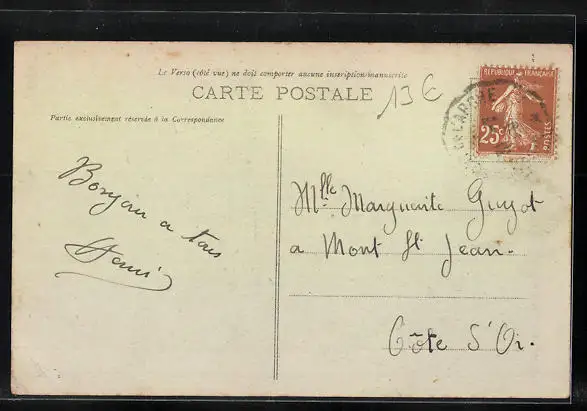 Le Verso (côté vue) ne doit comporter aucune inscription manuscrite
CARTE POSTALE
13 €
Partie exclusivement réservée à la Correspondance
REPUBLIQUE FRANÇAISE
25c
POSTES
Bonjour a tous
Henri
Mlle Marguerite Guyot
a Mont St Jean.
Côte d'Or.